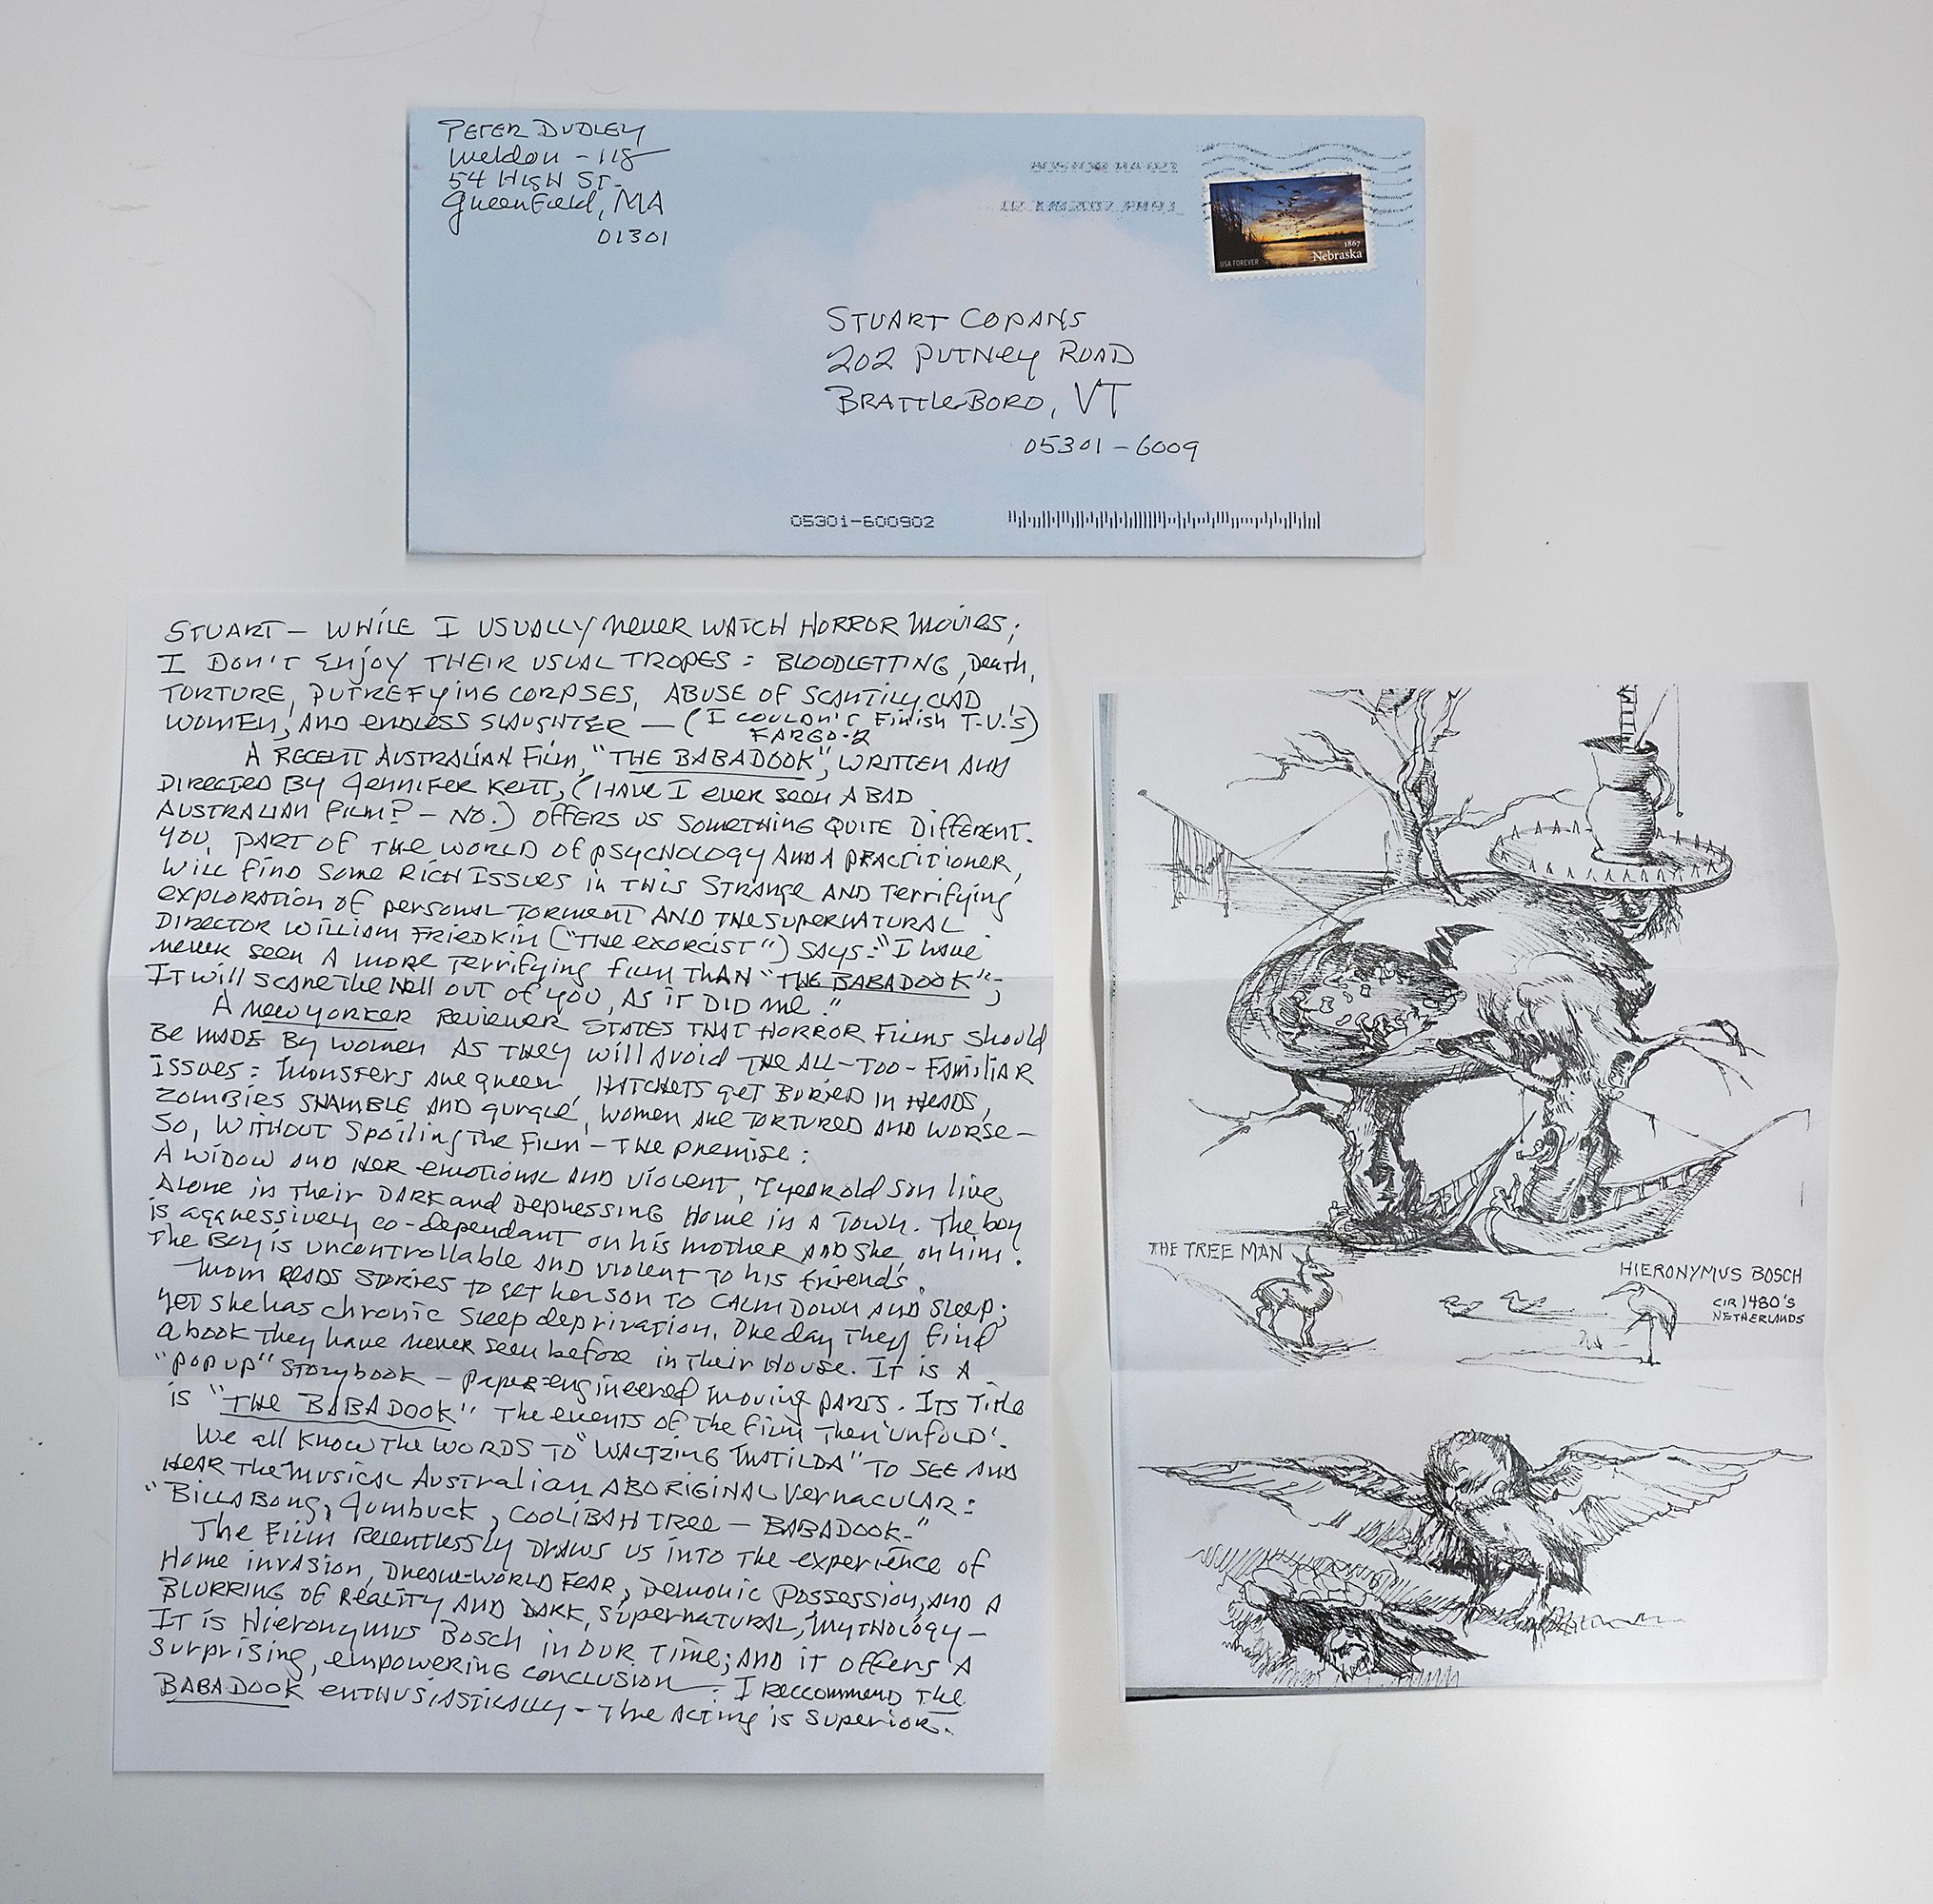 PETER DUDLEY
Weldon - 118
54 HIGH ST.
Greenfield, MA
01301
1867
Nebraska
USA FOREVER
STUART COPANS
202 PUTNEY ROAD
BRATTLEBORO, VT
05301-6009
05301-600902
STUART — WHILE I USUALLY NEVER WATCH HORROR MOVIES;
I DON'T ENJOY THEIR USUAL TROPES: BLOODLETTING, Death,
TORTURE, PUTREFYING CORPSES, ABUSE OF SCANTILY CLAD
WOMEN, AND ENDLESS SLAUGHTER — (I COULDN'T FINISH T.V.'S
FARGO-2)
A RECENT AUSTRALIAN FILM, "THE BABADOOK", WRITTEN AND
DIRECTED BY JENNIFER KENT, (HAVE I EVER SEEN A BAD
AUSTRALIAN FILM? — NO.) OFFERS US SOMETHING QUITE DIFFERENT.
YOU, PART OF THE WORLD OF PSYCHOLOGY AND A PRACTITIONER,
WILL FIND SOME RICH ISSUES IN THIS STRANGE AND TERRIFYING
EXPLORATION OF PERSONAL TORMENT AND THE SUPERNATURAL.
DIRECTOR WILLIAM FRIEDKIN ("THE EXORCIST") SAYS: "I HAVE
NEVER SEEN A MORE TERRIFYING FILM THAN "THE BABADOOK";
IT WILL SCARE THE HELL OUT OF YOU, AS IT DID ME."
A NEW YORKER REVIEWER STATES THAT HORROR FILMS SHOULD
BE MADE BY WOMEN AS THEY WILL AVOID THE ALL-TOO-FAMILIAR
ISSUES: MONSTERS ARE QUEER, HATCHETS GET BURIED IN HEADS,
ZOMBIES SHAMBLE AND GURGLE, WOMEN ARE TORTURED AND WORSE —
SO, WITHOUT SPOILING THE FILM — THE PREMISE:
A WIDOW AND HER EMOTIONAL AND VIOLENT, 7 year old son live
ALONE in Their DARK and Depressing Home in a Town. The boy
is aggressively co-dependant on his mother and she, on him.
The Boy is uncontrollable and violent to his friends.
Mom READS STORIES TO get her son TO CALM DOWN AND SLEEP;
yet she has chronic sleep deprivation. One day they find
a book they have never seen before in their House. It is A
"POP UP" STORYbook — paper-engineered moving parts. Its Title
is "THE BABADOOK" The events of the film then 'unfold'.
We all KNOW THE WORDS TO "WALTZING MATILDA" TO SEE AND
HEAR THE MUSICAL AUSTRALIAN ABORIGINAL VERNACULAR:
"BILLABONG, Jumbuck, COOLIBAH TREE — BABADOOK."
The Film RELENTLESSLY DRAWS US INTO THE experience of
Home invasion, DREAM-WORLD FEAR, Demonic Possession, AND A
BLURRING OF REALITY AND DARK, SUPERNATURAL, MYTHOLOGY —
IT IS Hieronymus Bosch in OUR TIME; AND iT OFFERS A
Surprising, empowering conclusion. I RECCOMMEND THE
BABADOOK ENTHUSIASTICALLY — The Acting is Superior.
THE TREE MAN
HIERONYMUS BOSCH
CIR 1480'S
NETHERLANDS